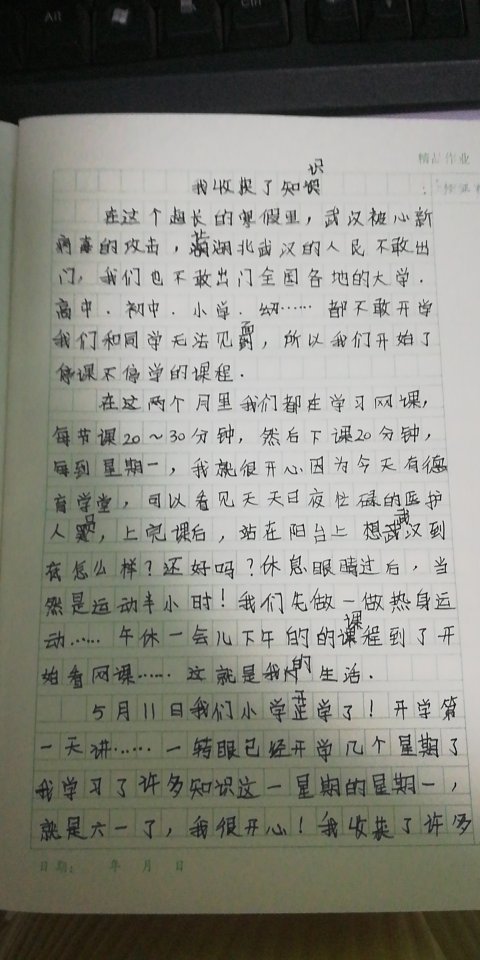 Alt
Ctrl
精品作业
我收获了知识
在这个超长的寒假里，武汉被心新
病毒的攻击，湖北武汉的人民不敢出
门，我们也不敢出门全国各地的大学．
高中．初中．小学．幼……都不敢开学
我们和同学无法见面，所以我们开始了
停课不停学的课程．
在这两个月里我们都在学习网课，
每节课20～30分钟，然后下课20分钟，
每到星期一，我就很开心因为今天有德
育学堂，可以看见天天日夜忙碌的医护
人员，上完课后，站在阳台上想武汉到
底怎么样？还好吗？休息眼睛过后，当
然是运动半小时！我们先做一做热身运
动……午休一会儿下午的的课程到了开
始看网课……这就是我的生活．
5月11日我们小学开学了！开学第
一天讲……一转眼已经开学几个星期了
我学习了许多知识这一星期的星期一，
就是六一了，我很开心！我收获了许多
日期： 年 月 日